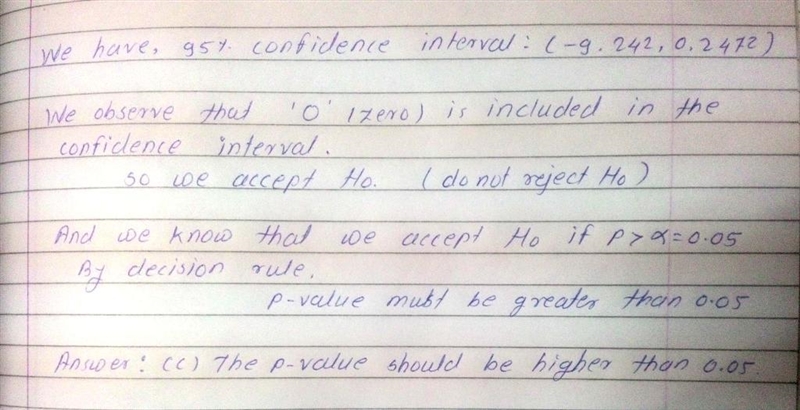 We have, 95% confidence interval: (-9.242, 0.2472)
We observe that '0' (zero) is included in the
confidence interval.
so we accept Ho. (do not reject Ho)
And we know that we accept Ho if P > α = 0.05
By decision rule,
P-value must be greater than 0.05
Answer: (c) The p-value should be higher than 0.05.